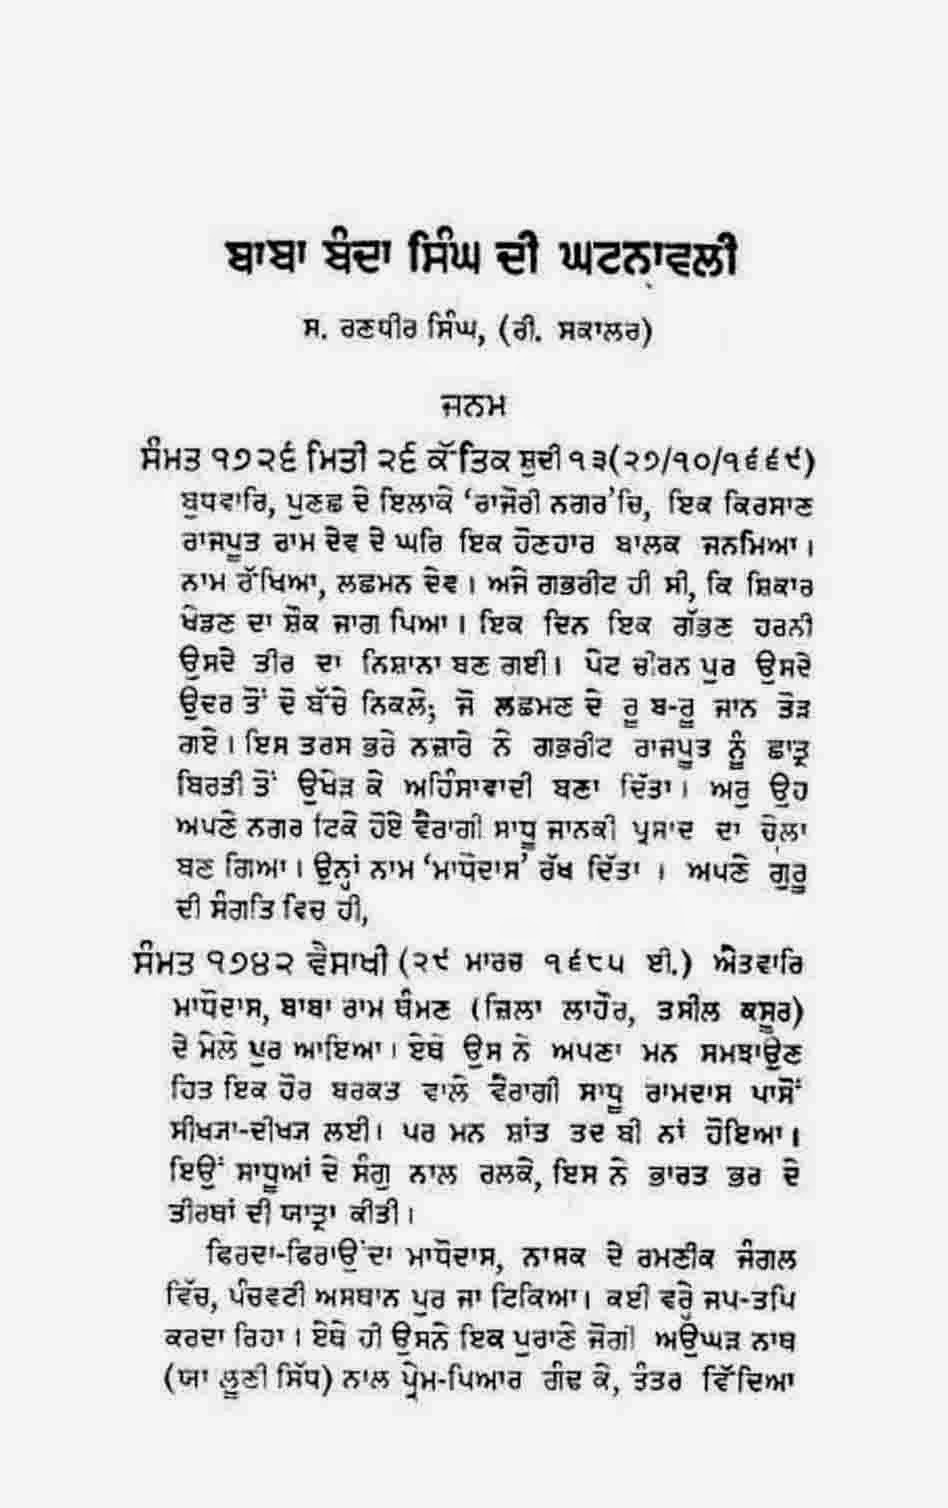 ਬਾਬਾ ਬੰਦਾ ਸਿੰਘ ਦੀ ਘਟਨਾਵਲੀ
ਸ. ਰਣਧੀਰ ਸਿੰਘ, (ਰੀ. ਸਕਾਲਰ)
ਜਨਮ
ਸੰਮਤ ੧੭੨੬ ਮਿਤੀ ੨੬ ਕੱਤਿਕ ਸ਼ੁਦੀ ੧੩(੨੭/੧੦/੧੬੬੯)
ਬੁਧਵਾਰਿ, ਪੁਣਛ ਦੇ ਇਲਾਕੇ ‘ਰਾਜੌਰੀ ਨਗਰ’ਚਿ, ਇਕ ਕਿਰਸਾਣ
ਰਾਜਪੂਤ ਰਾਮ ਦੇਵ ਦੇ ਘਰਿ ਇਕ ਹੋਣਹਾਰ ਬਾਲਕ ਜਨਮਿਆ।
ਨਾਮ ਰੱਖਿਆ, ਲਛਮਨ ਦੇਵ। ਅਜੇ ਗਭਰੀਟ ਹੀ ਸੀ, ਕਿ ਸ਼ਿਕਾਰ
ਖੇਡਣ ਦਾ ਸ਼ੌਕ ਜਾਗ ਪਿਆ। ਇਕ ਦਿਨ ਇਕ ਗੱਭਣ ਹਰਨੀ
ਉਸਦੇ ਤੀਰ ਦਾ ਨਿਸ਼ਾਨਾ ਬਣ ਗਈ। ਪੇਟ ਚੀਰਨ ਪੁਰ ਉਸਦੇ
ਉਦਰ ਤੋਂ ਦੋ ਬੱਚੇ ਨਿਕਲੇ; ਜੋ ਲਛਮਣ ਦੇ ਰੂ ਬ-ਰੂ ਜਾਨ ਤੋੜ
ਗਏ। ਇਸ ਤਰਸ ਭਰੇ ਨਜ਼ਾਰੇ ਨੇ ਗਭਰੀਟ ਰਾਜਪੂਤ ਨੂੰ ਛਾਤ੍ਰ
ਬਿਰਤੀ ਤੋਂ ਉਖੇੜ ਕੇ ਅਹਿੰਸਾਵਾਦੀ ਬਣਾ ਦਿੱਤਾ। ਅਰੁ ਉਹ
ਅਪਣੇ ਨਗਰ ਟਿਕੇ ਹੋਏ ਵੈਰਾਗੀ ਸਾਧੂ ਜਾਨਕੀ ਪ੍ਰਸਾਦ ਦਾ ਚੇਲਾ
ਬਣ ਗਿਆ। ਉਨ੍ਹਾਂ ਨਾਮ ‘ਮਾਧੋਦਾਸ’ ਰੱਖ ਦਿੱਤਾ । ਅਪਣੇ ਗੁਰੂ
ਦੀ ਸੰਗਤਿ ਵਿਚ ਹੀ,
ਸੰਮਤ ੧੭੪੨ ਵੈਸਾਖੀ (੨੯ ਮਾਰਚ ੧੬੮੫ ਈ.) ਐਤਵਾਰਿ
ਮਾਧੋਦਾਸ, ਬਾਬਾ ਰਾਮ ਥੰਮਣ (ਜ਼ਿਲਾ ਲਾਹੌਰ, ਤਸੀਲ ਕਸੂਰ)
ਦੇ ਮੇਲੇ ਪੁਰ ਆਇਆ। ਏਥੇ ਉਸ ਨੇ ਅਪਣਾ ਮਨ ਸਮਝਾਉਣ
ਹਿਤ ਇਕ ਹੋਰ ਬਰਕਤ ਵਾਲੇ ਵੈਰਾਗੀ ਸਾਧੂ ਰਾਮਦਾਸ ਪਾਸੋਂ
ਸੀਖ੍ਯਾ-ਦੀਖ੍ਯਾ ਲਈ। ਪਰ ਮਨ ਸ਼ਾਂਤ ਤਦ ਬੀ ਨਾਂ ਹੋਇਆ।
ਇਉਂ ਸਾਧੂਆਂ ਦੇ ਸੰਗੁ ਨਾਲ ਰਲਕੇ, ਇਸ ਨੇ ਭਾਰਤ ਭਰ ਦੇ
ਤੀਰਥਾਂ ਦੀ ਯਾਤ੍ਰਾ ਕੀਤੀ।
ਫਿਰਦਾ-ਫਿਰਾਉਂਦਾ ਮਾਧੋਦਾਸ, ਨਾਸਕ ਦੇ ਰਮਣੀਕ ਜੰਗਲ
ਵਿੱਚ, ਪੰਚਵਟੀ ਅਸਥਾਨ ਪੁਰ ਜਾ ਟਿਕਿਆ। ਕਈ ਵਰ੍ਹੇ ਜਪ-ਤਪਿ
ਕਰਦਾ ਰਿਹਾ। ਏਥੇ ਹੀ ਉਸਨੇ ਇਕ ਪੁਰਾਣੇ ਜੋਗੀ ਅਉਘੜ ਨਾਥ
(ਯਾ ਲੂਣੀ ਸਿੱਧ) ਨਾਲ ਪ੍ਰੇਮ-ਪਿਆਰ ਗੰਢ ਕੇ, ਤੰਤਰ ਵਿੱਦਿਆ